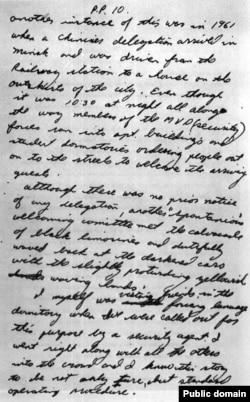 P.P. 10.
another instance of this was in 1961
when a Chinese delegation arrived in
Minsk and was driven from the
Railroay station to a house on the
outskirts of the city. Even though
it was 10:30 at night all along
the way members of the MVD (security)
forces ran into apt. buildings and
student dormatories ordering people out
on to the streets to welcome the arriving
guests.
although there was no prior notice
of any delegation, another spontanious
welcoming committee met the calvacade
of black limousines and dutifully
waved back at the darkened cars
with the slightly protruding yellowish
waving hands.
I myself was visiting friends in the
dormitory when we were called out for
this purpose by a security agent. I
went right along with all the others
into the crowd and I know this story
to be not only true, but standard
operating procedure.
Public domain